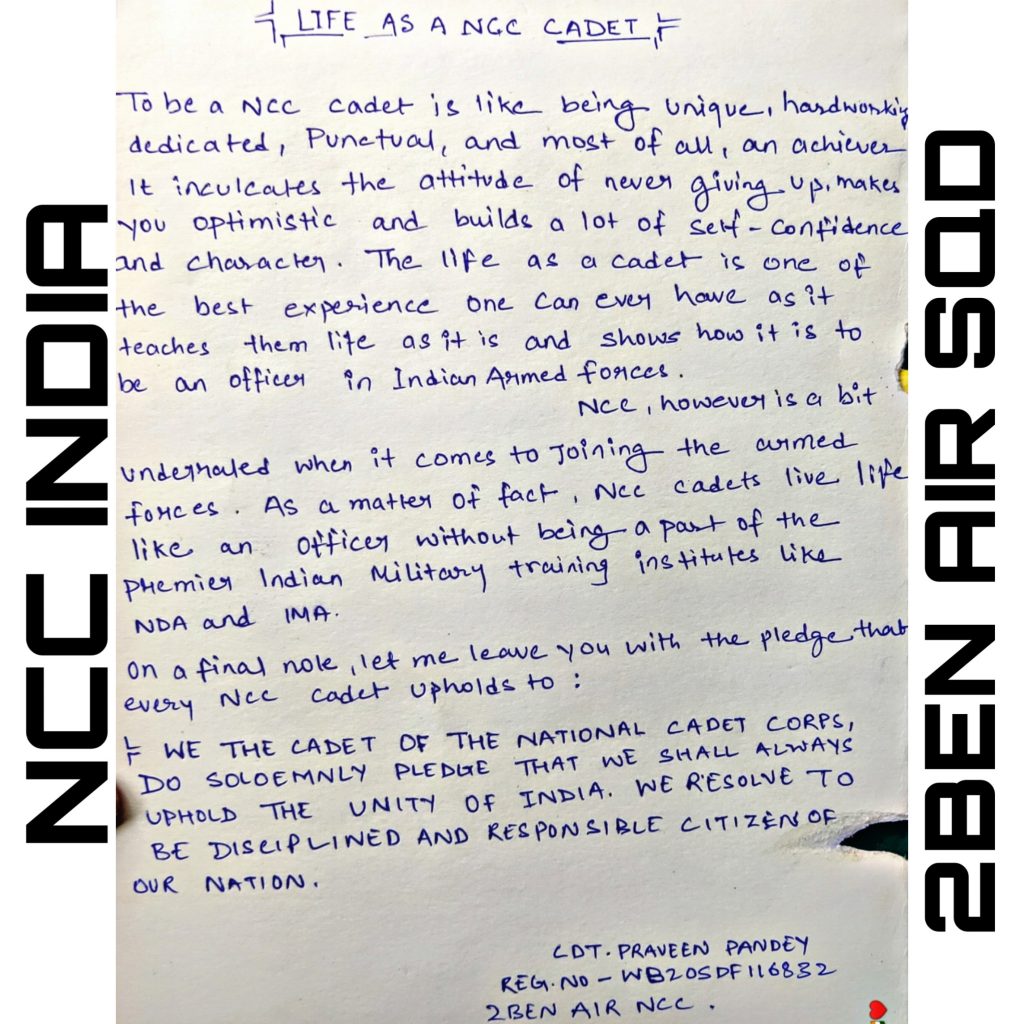 LIFE AS A NCC CADET
To be a NCC cadet is like being unique, hardworking
dedicated, Punctual, and most of all, an achiever
It inculcates the attitude of never giving up, makes
you optimistic and builds a lot of self-confidence
and character. The life as a cadet is one of
the best experience one can ever have as it
teaches them life as it is and shows how it is to
be an officer in Indian Armed forces.
NCC, however is a bit
underrated when it comes to Joining the armed
forces. As a matter of fact, NCC cadets live life
like an officer without being a part of the
premier Indian Military training institutes like
NDA and IMA.
On a final note, let me leave you with the pledge that
every NCC cadet upholds to :
WE THE CADET OF THE NATIONAL CADET CORPS,
DO SOLOEMNLY PLEDGE THAT WE SHALL ALWAYS
UPHOLD THE UNITY OF INDIA. WE RESOLVE TO
BE DISCIPLINED AND RESPONSIBLE CITIZEN OF
OUR NATION.
CDT. PRAVEEN PANDEY
REG.NO - WB20SDF116832
2BEN AIR NCC.
NCC INDIA
2BEN AIR SQD